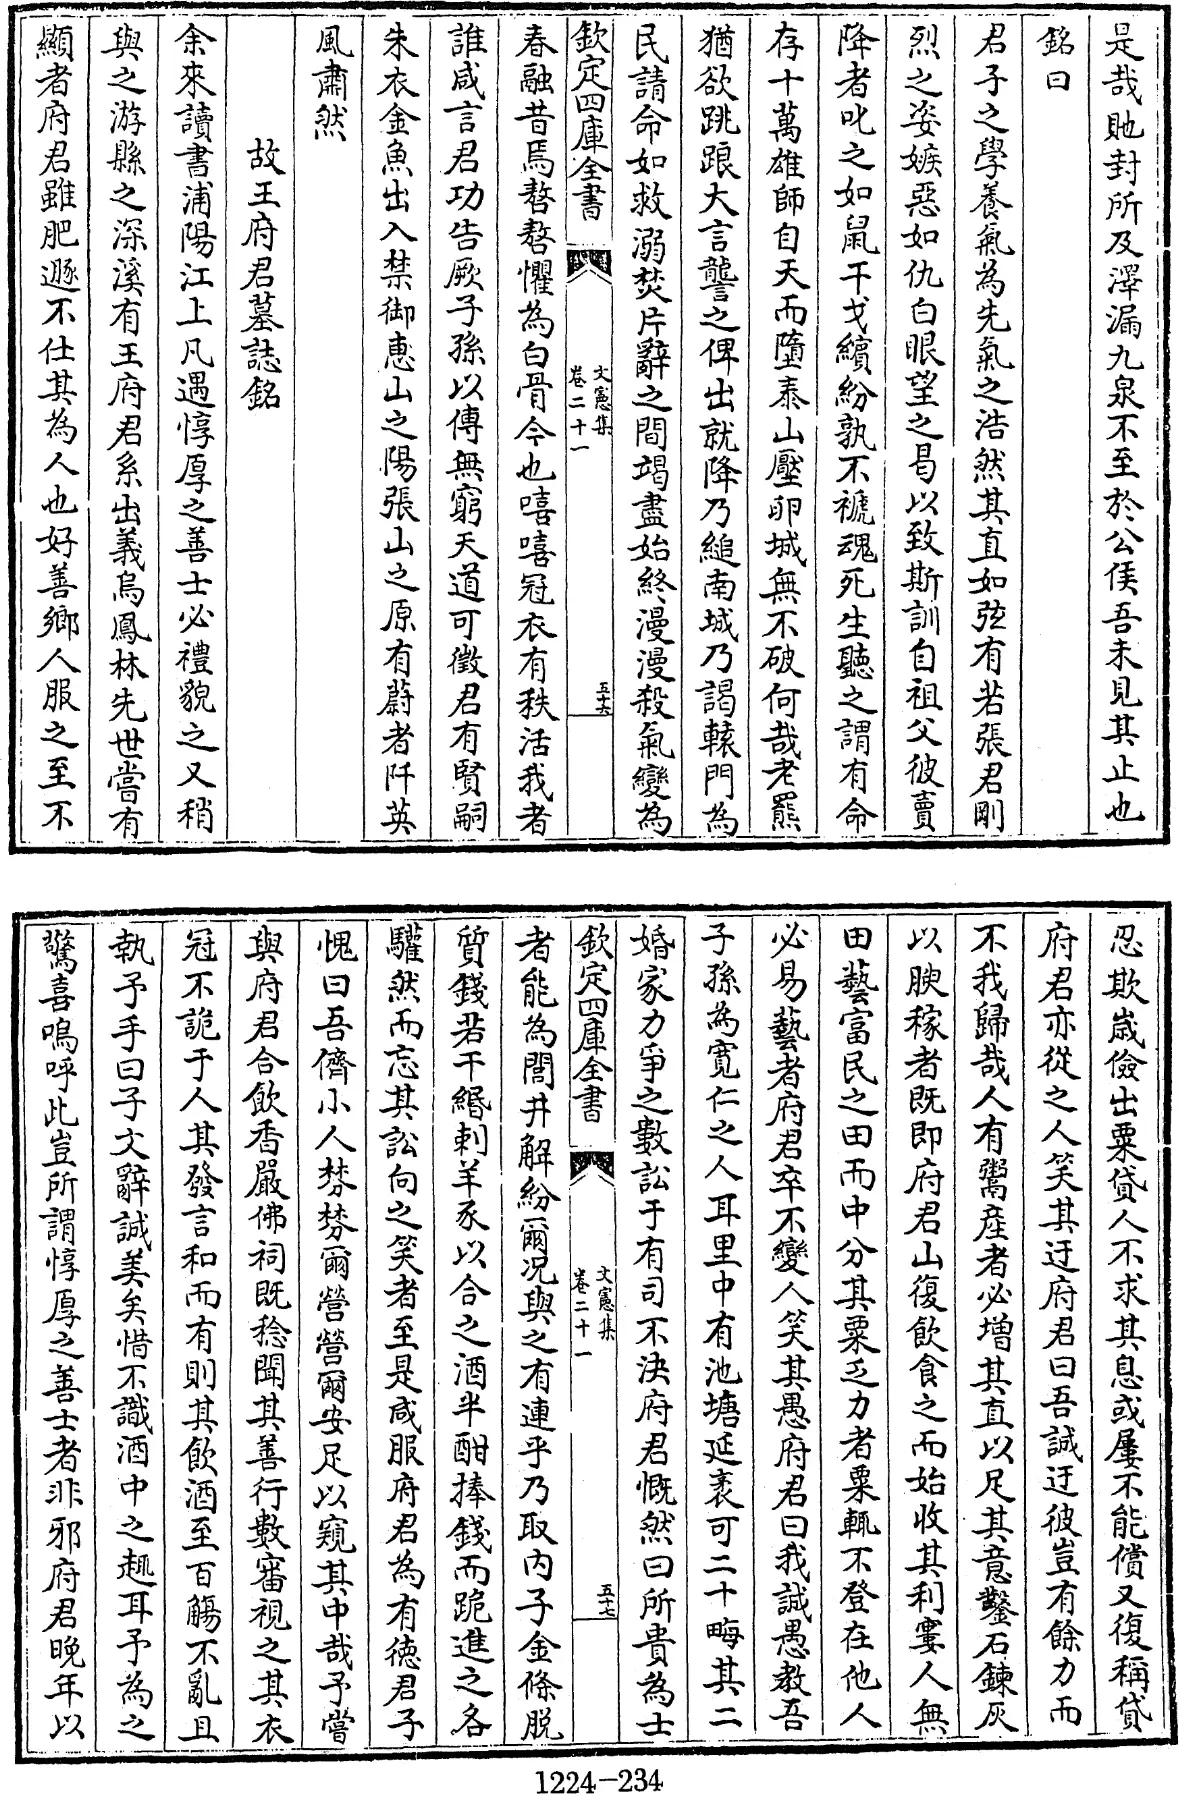 是哉貤封所及澤漏九泉不至於公侯吾未見其止也
銘曰
君子之學養氣為先氣之浩然其直如弦有若張君剛
烈之姿嫉惡如仇白眼望之曷以致斯訓自祖父彼賣
降者叱之如鼠干戈繽紛孰不褫魂死生聽之謂有命
存十萬雄師自天而墮泰山壓卵城無不破何哉老羆
猶欲跳踉大言讋之俾出就降乃縋南城乃謁轅門為
民請命如救溺焚片辭之間竭盡始終漫漫殺氣變為
欽定四庫全書
文憲集
卷二十一
五十六
春融昔焉嗸嗸懼為白骨今也嘻嘻冠衣有秩活我者
誰咸言君功告厥子孫以傳無窮天道可徵君有賢嗣
朱衣金魚出入禁御惠山之陽張山之原有蔚者阡英
風肅然
故王府君墓誌銘
余來讀書浦陽江上凡遇惇厚之善士必禮貌之又稍
與之游縣之深溪有王府君系出義烏鳳林先世嘗有
顯者府君雖肥遯不仕其為人也好善鄉人服之至不
忍欺歲儉出粟貸人不求其息或屢不能償又復稱貸
府君亦從之人笑其迂府君曰吾誠迂彼豈有餘力而
不我歸哉人有鬻產者必增其直以足其意鑿石鍊灰
以腴稼者既即府君山復飲食之而始收其利窶人無
田藝富民之田而中分其粟乏力者粟輒不登在他人
必易藝者府君卒不變人笑其愚府君曰我誠愚教吾
子孫為寬仁之人耳里中有池塘延袤可二十畮其二
婚家力爭之數訟于有司不決府君慨然曰所貴為士
欽定四庫全書
文憲集
卷二十一
五十七
者能為閭井解紛爾況與之有連乎乃取內子金條脫
質錢若干緡刺羊豕以合之酒半酣捧錢而跪進之各
驩然而忘其訟向之笑者至是咸服府君為有德君子
愧曰吾儕小人棼棼爾營營爾安足以窺其中哉予嘗
與府君合飲香嚴佛祠既稔聞其善行數審視之其衣
冠不詭于人其發言和而有則其飲酒至百觴不亂且
執予手曰子文辭誠美矣惜不識酒中之趣耳予為之
驚喜嗚呼此豈所謂惇厚之善士者非邪府君晚年以
1224-234